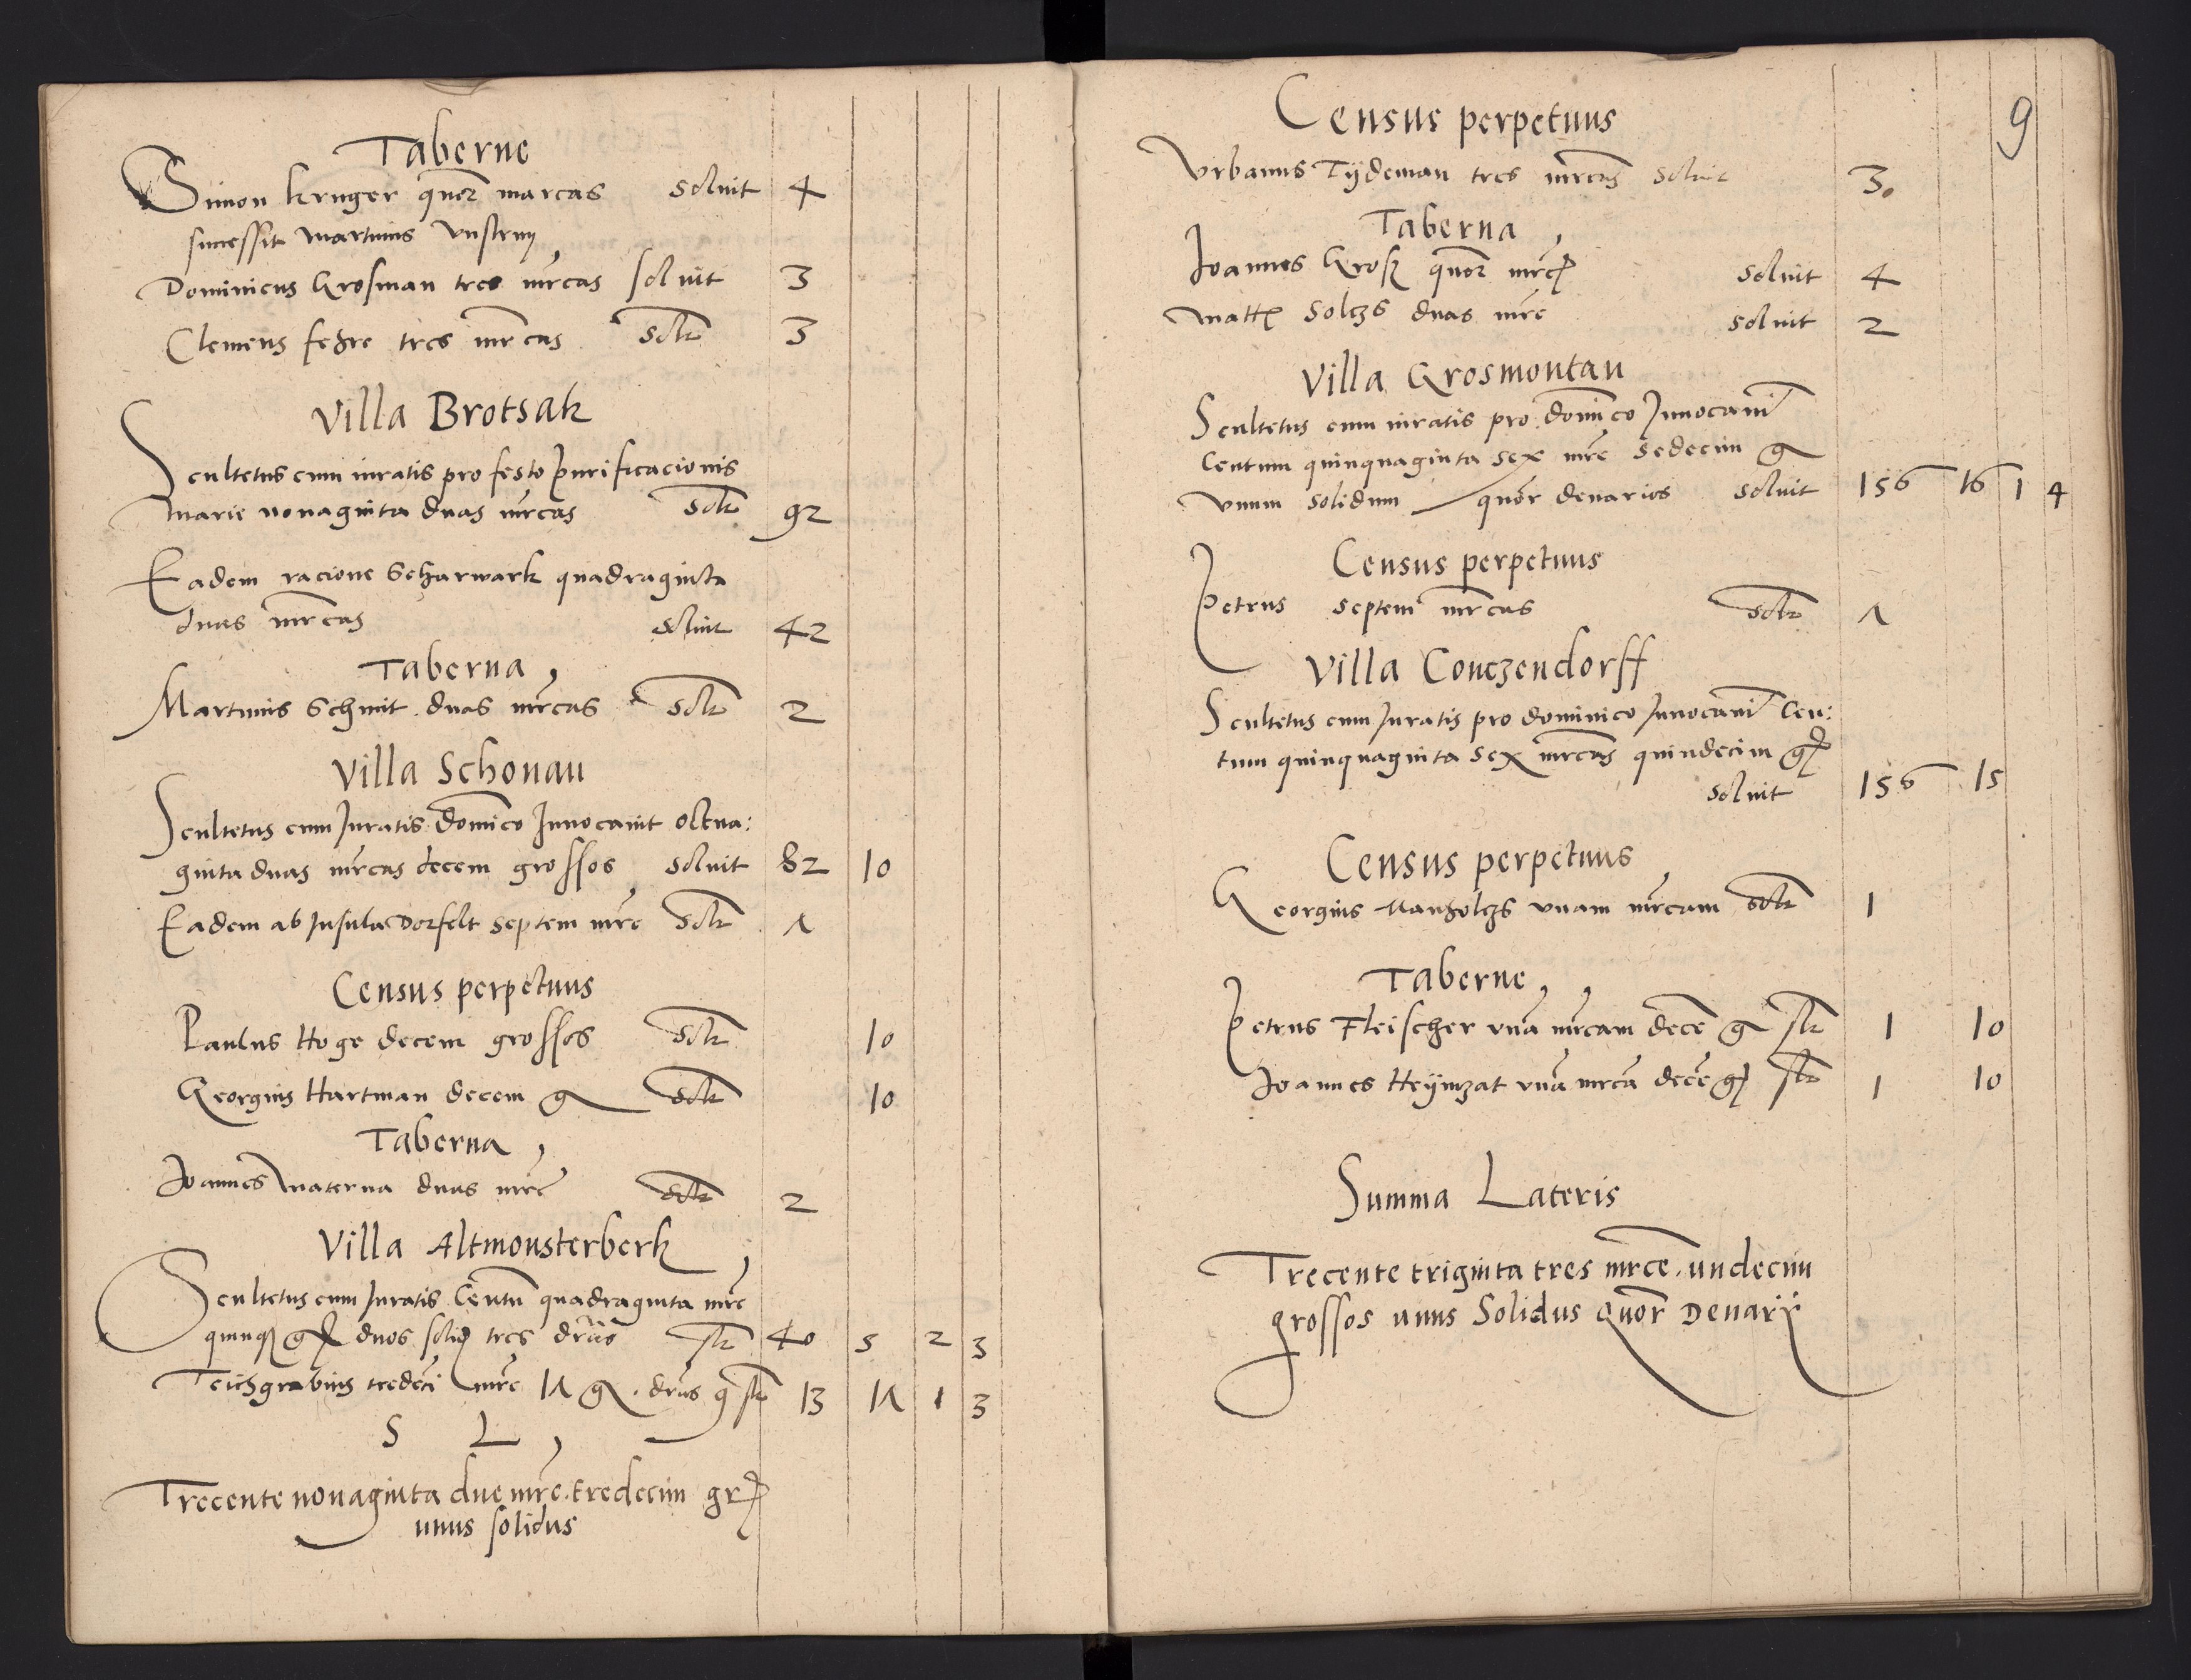 Taberne
Simon Kruger quor marcas soluit 4
successit Martinus Vnstruy
Dominicus Grosman tres mrcas soluit 3
Clemens fehre tres mrcas solt 3
Villa Brotsak
Scultetus cum iuratis pro festo purificacionis
Marie nonaginta duas mrcas solt 92
Eadem racione Scharwark quadraginta
duas mrcas soluit 42
Taberna
Martinus Schmit duas mrcas solt 2
Villa Schonau
Scultetus cum Juratis domico Inuocauit octua:
ginta duas mrcas decem grossos soluit 82 10
Eadem ab Insula Dorfelt septem mrc solt 7
Census perpetuus
Paulus Hoge decem grossos solt 10
Georgius Hartman decem g solt 10
Taberna
Joannes Materna duas mrc solt 2
Villa Altmonsterberk
Scultetus cum Juratis Centu quadraginta mrc
quinq g duos solid tres drios slt 40 5 2 3
Teichgrabius tredeci mrc 17 g. drius slt 13 17 1 3
S L
Trecente nonaginta due mrc. tredecim gr
unus solidus
9
Census perpetuus
Vrbanus Tÿdeman tres mrcas soluit 3.
Taberna
Joannes Groß quor mrc soluit 4
Matt Solczs duas mrc soluit 2
Villa Grosmontau
Scultetus cum iuratis pro domico Inuocauit
Centum quinquaginta sex mrc sedecim g
vnum solidum quor denarios soluit 156 16 1 4
Census perpetuus
Petrus septem mrcas solt 7
Villa Conczendorff
Scultetus cum Juratis pro dominico Inuocauit Cen:
tum quinquaginta sex mrcas quindecim g
soluit 156 15
Census perpetuus
Georgius Manholczs vnam mrcam solt 1
Taberne
Petrus Fleischer vna mrcam dece g slt 1 10
Joannes Heÿnzat vna mrca dece g slt 1 10
Summa Lateris
Trecente triginta tres mrce. undecim
grossos unus Solidus quor Denarÿ